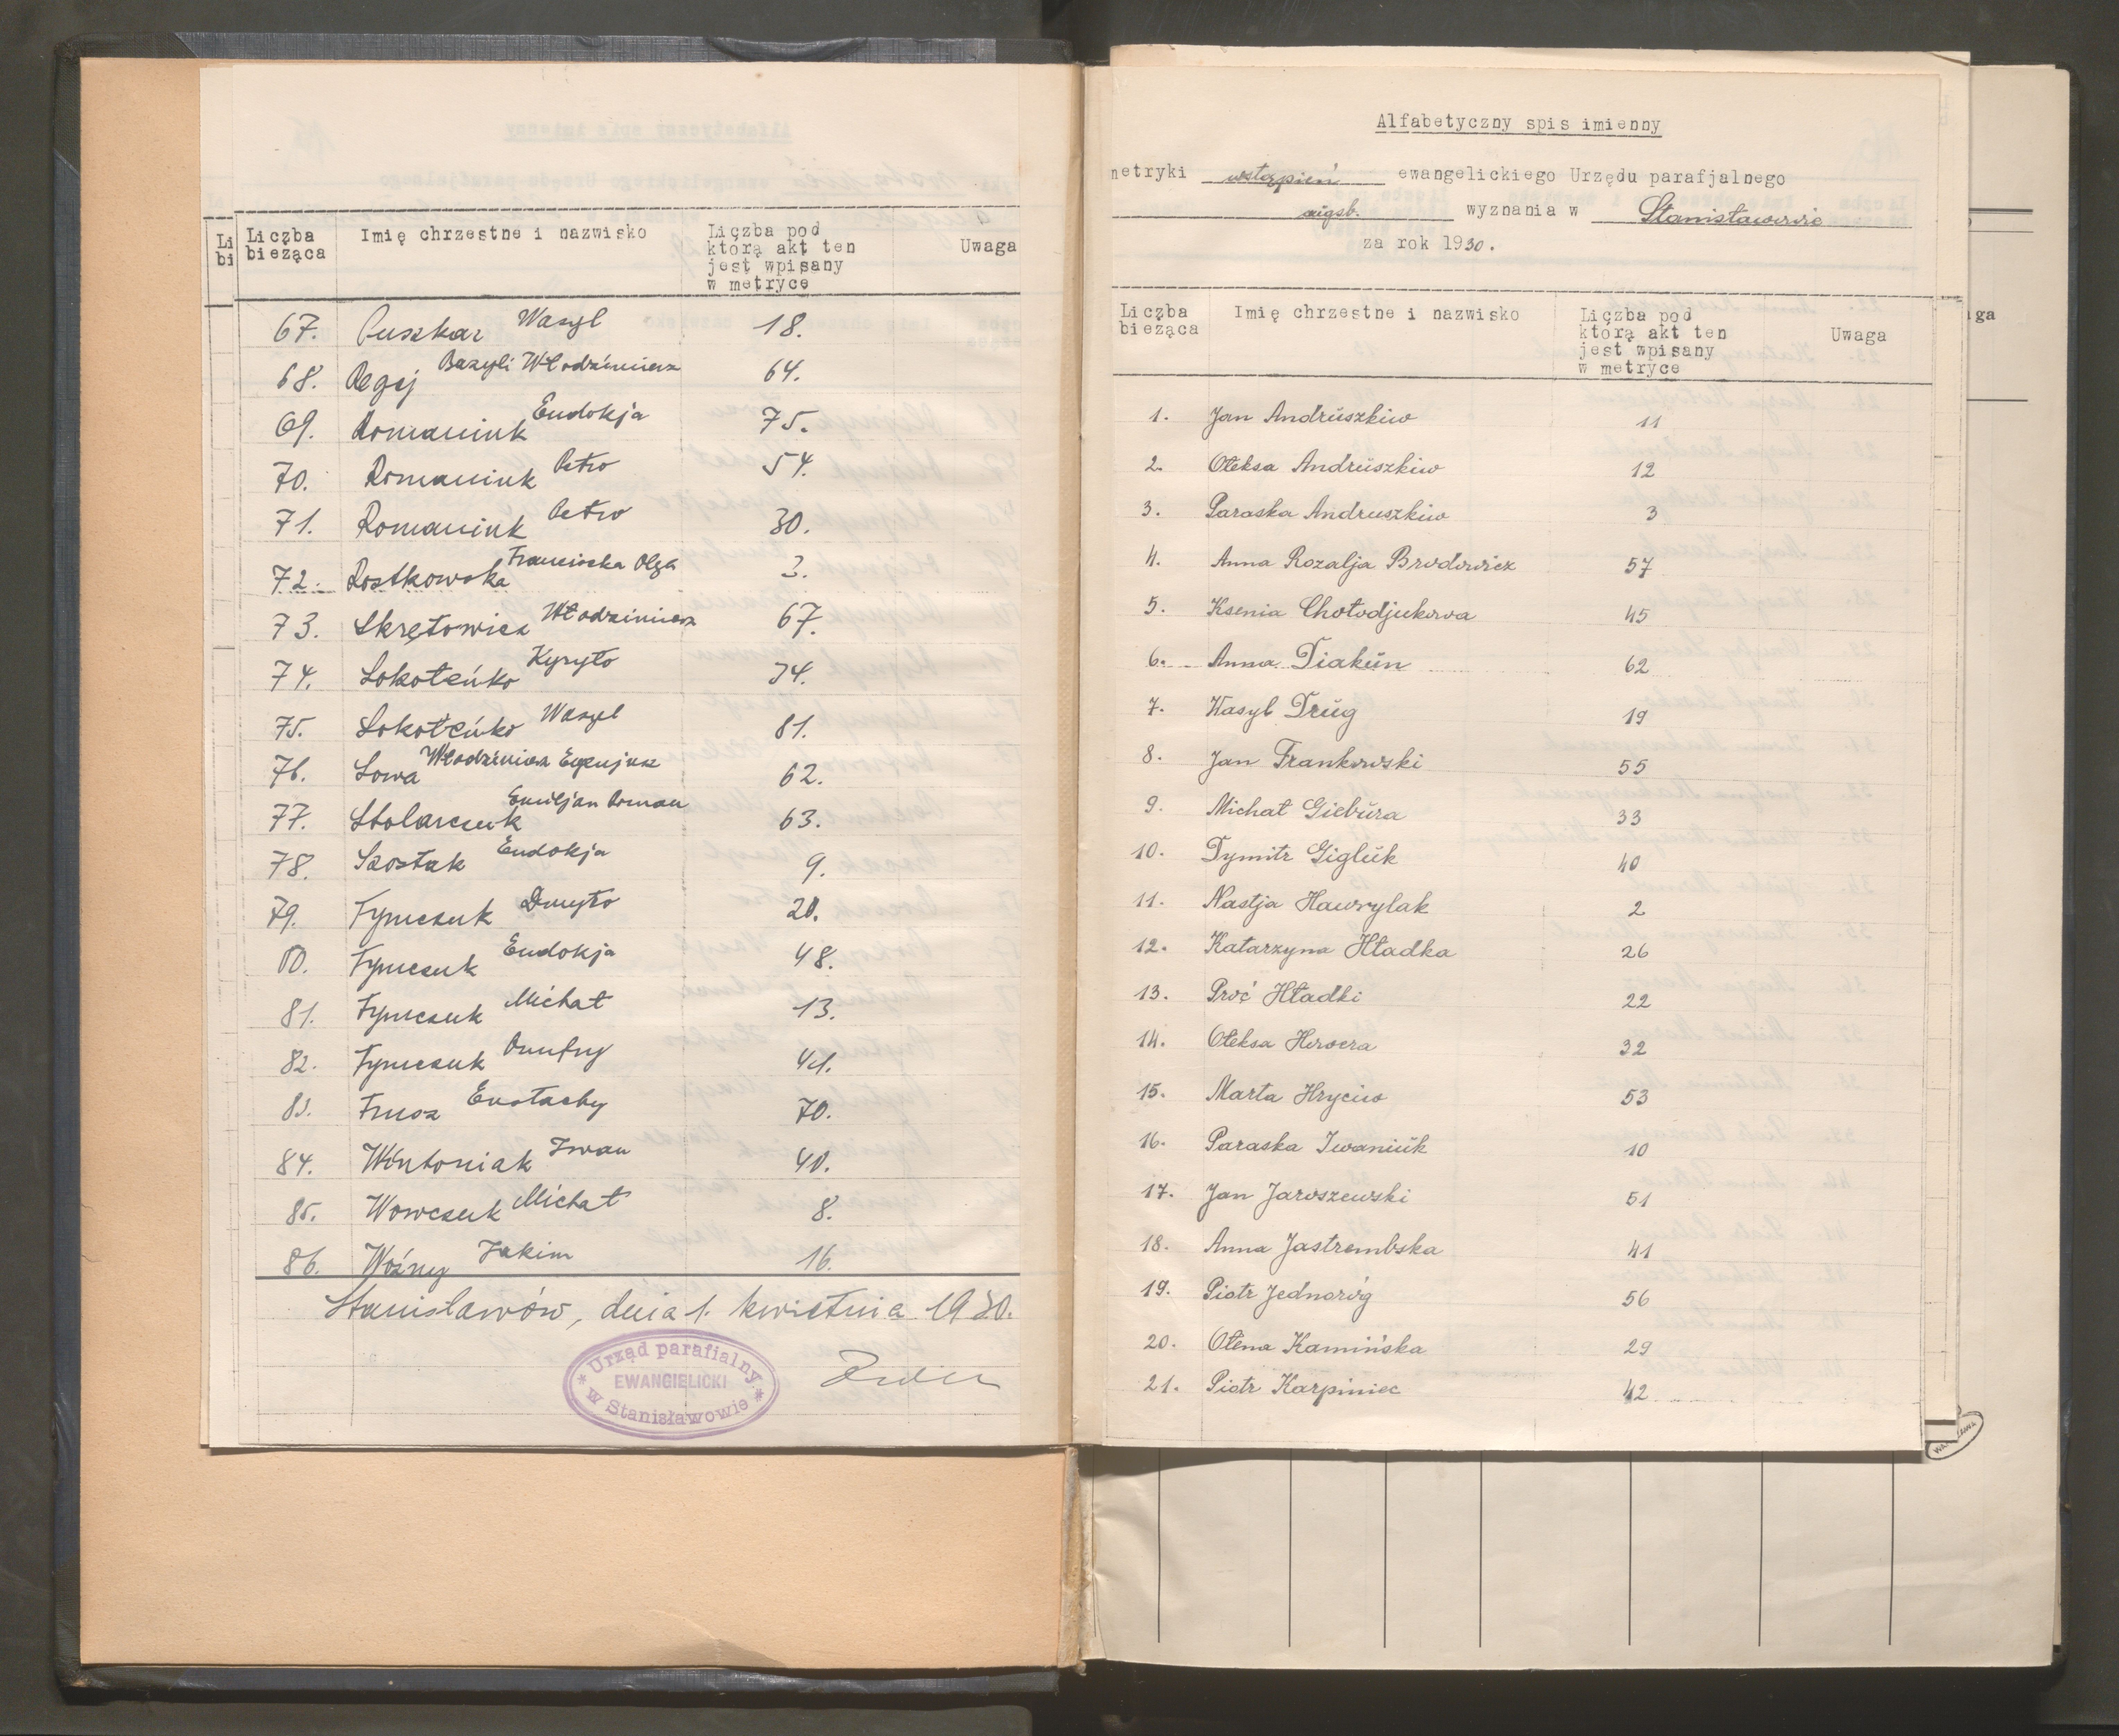 Liczba bieżąca
Imię chrzestne i nazwisko
Liczba pod którą akt ten jest wpisany w metryce
Uwaga
67. Puszkar Wasyl 18.
68. Regej Bazyli Włodzimierz 64.
69. Romaniuk Eudokja 75.
70. Romaniuk Petro 54.
71. Romaniuk Petro 30.
72. Rostkowska Franciszka Olga 3.
73. Skrętowicz Włodzimierz 67.
74. Sokoteńko Kyryło 34.
75. Sokoteńko Wasyl 81.
76. Sowa Włodzimierz Eugenjusz 62.
77. Stolarczuk Emiljan Roman 63.
78. Szostak Eudokja 9.
79. Tymczuk Dmytro 20.
80. Tymczuk Eudokja 48.
81. Tymczuk Michał 13.
82. Tymczuk Onufry 41.
83. Trusz Eustachy 70.
84. Wintoniak Iwan 40.
85. Wowczuk Michał 8.
86. Woźny Jakim 16.
Stanisławów, dnia 1. kwietnia 1930.
Urząd parafialny
EWANGIELICKI
w Stanisławowie
Alfabetyczny spis imienny
metryki wstąpień ewangelickiego Urzędu parafjalnego
augsb. wyznania w Stanisławowie
za rok 1930.
Liczba bieżąca
Imię chrzestne i nazwisko
Liczba pod którą akt ten jest wpisany w metryce
Uwaga
1. Jan Andruszkiw 11
2. Ołeksa Andruszkiw 12
3. Paraska Andruszkiw 3
4. Anna Rozalja Brodowicz 57
5. Ksenia Chołodjukowa 45
6. Anna Diakun 62
7. Wasyl Drug 19
8. Jan Frankowski 55
9. Michał Giebura 33
10. Dymitr Gigluk 40
11. Nastja Hawrylak 2
12. Katarzyna Hładka 26
13. Proć Hładki 22
14. Ołeksa Herocra 32
15. Marta Hryciw 53
16. Paraska Iwaniuk 10
17. Jan Jaroszewski 51
18. Anna Jastrembska 41
19. Piotr Jednoróg 56
20. Ołena Kamińska 29
21. Piotr Karpiniec 42